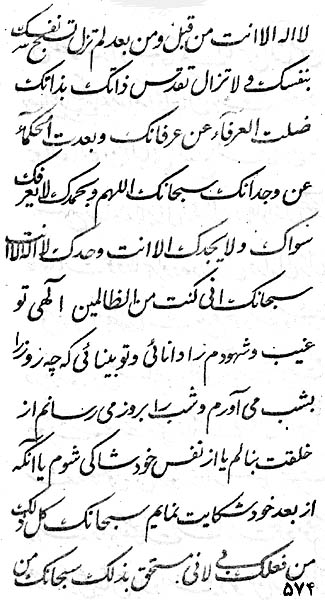 لا اله الا انت من قبل و من بعد لم تزل تسبح نفسك
بنفسك و لا تزال تقدس ذاتك بذاتك
ضلت العرفاء عن عرفانك و بعدت الحكماء
عن وجدانك سبحانك اللهم و بحمدك لا يعرفك
سواك و لا يجدك الا انت وحدك لا اله الا انت
سبحانك انی كنت من الظالمین الهی تو
غیب و شهودم را دانائی و تو بینائی كه چه روز را
بشب می آورم و شب را بروز می رسانم از
خلقت بنالم یا از نفس خود شاكی شوم یا آنكه
از بعد خود شكایت نمایم سبحانك كل ذلك
من فعلك فی لانی مستحق بذلك سبحانك من
۵۷۴